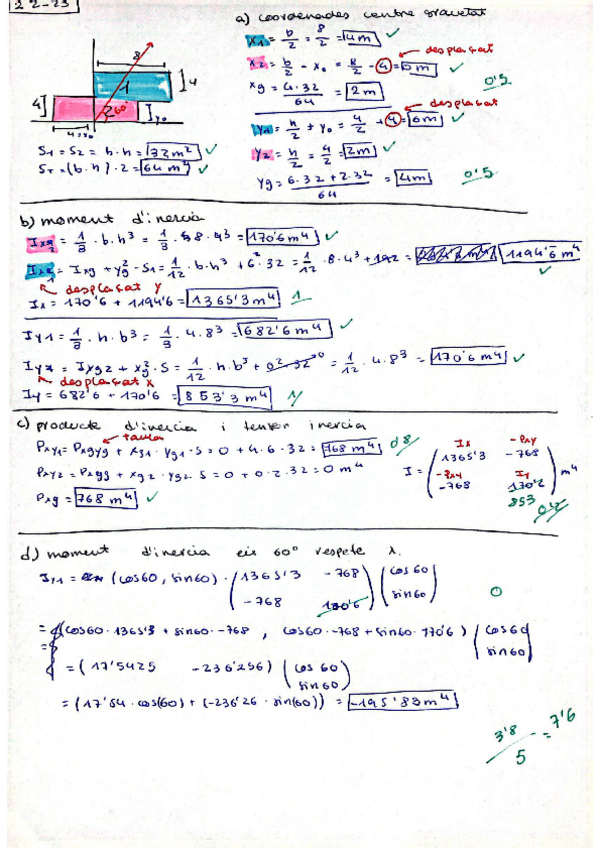 22-23
a) coordenades centre gravetat
X1 = b/2 = 8/2 = 4m ✓
desplaçat
X2 = b/2 - x0 = 8/2 - 4 = 0m ✓
0'5
xg = 4·32/64 = 2m
desplaçat
Y1 = h/2 + y0 = 4/2 + 4 = 6m ✓
Y2 = h/2 = 4/2 = 2m ✓
yg = 6·32 + 2·32/64 = 4m
0'5
8
1
4
4
2
60°
y0
4=x0
S1 = S2 = b·h = 32m² ✓
ST = (b·h)·2 = 64m² ✓
b) moment d'inercia
Ix2 = 1/3 · b·h³ = 1/3 · 8·4³ = 170'6 m⁴ ✓
Ix1 = Ixg + yg²·S1 = 1/12 · b·h³ + 6²·32 = 1/12 · 8·4³ + 1194'6 m⁴ ✓
desplaçat y
Ix = 170'6 + 1194'6 = 1365'3 m⁴ 1
Iy1 = 1/3 · h·b³ = 1/3 · 4·8³ = 682'6 m⁴ ✓
Iy2 = Ixg2 + xg²·S = 1/12 · h·b³ + 0²·32 = 1/12 · 4·8³ = 170'6 m⁴ ✓
desplaçat x
Iy = 682'6 + 170'6 = 853'3 m⁴
c) producte d'inercia i tensor inercia
taula
Pxy1 = Pxgyg + xg1·yg1·S = 0 + 4·6·32 = 768 m⁴ 0'8
Pxy2 = Pxgyg + xg2·yg2·S = 0 + 0·2·32 = 0 m⁴
Pxy = 768 m⁴ ✓
Ix -Pxy
I = ( 1365'3 -768
-Pxy Iy
-768 170'6 ) m⁴
853
d) moment d'inercia eix 60° respecte x.
Iy1 = (cos60, sin60) · ( 1365'3 -768 ) ( cos60
-768 170'6 ) sin60 ) 0
= (cos60·1365'3 + sin60·-768 , cos60·-768 + sin60·170'6) ( cos60
sin60 )
= ( 17'5425 -236'256) ( cos60
sin60 )
= (17'54 · cos(60) + (-236'26 · sin(60)) = -195'83 m⁴
3'8/5 = 7'6